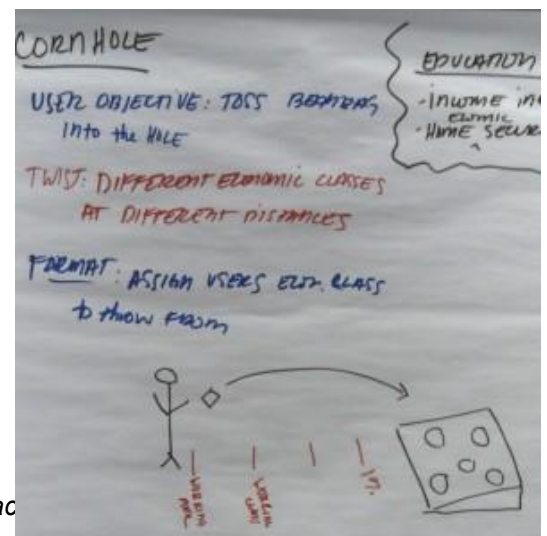 CORNHOLE
USER OBJECTIVE: TOSS BEANBAG
into the HOLE
TWIST: DIFFERENT ECONOMIC CLASSES
AT DIFFERENT DISTANCES
FORMAT: ASSIGN USERS ECON. CLASS
to throw FROM
EDUCATION
- INCOME
- HOME
WORKING
WORKING CLASS
1%